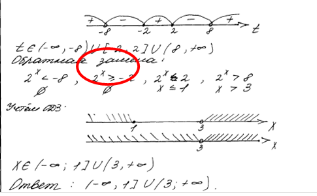 + - + - +
-8 -2 2 8 t
t ∈ (-∞, -8) ∪ [-2, 2] ∪ (8, +∞)
Обратная замена:
2^x < -8, 2^x ≥ -2, 2^x ≤ 2, 2^x > 8
∅ ∅ x ≤ 1 x > 3
Учтём ОДЗ:
1 3 x
3 x
x ∈ (-∞; 1] ∪ (3, +∞)
Ответ: (-∞, 1] ∪ (3; +∞).